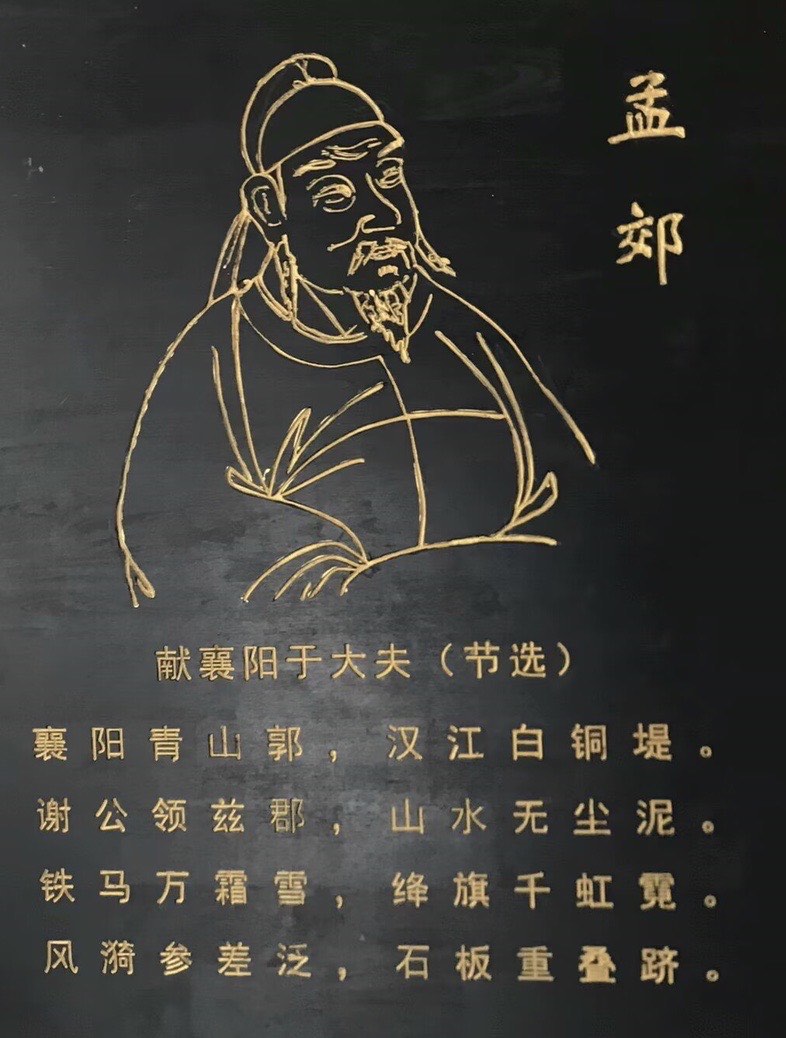 孟郊
献襄阳于大夫（节选）
襄阳青山郭，汉江白铜堤。
谢公领兹郡，山水无尘泥。
铁马万霜雪，绛旗千虹霓。
风漪参差泛，石板重叠跻。